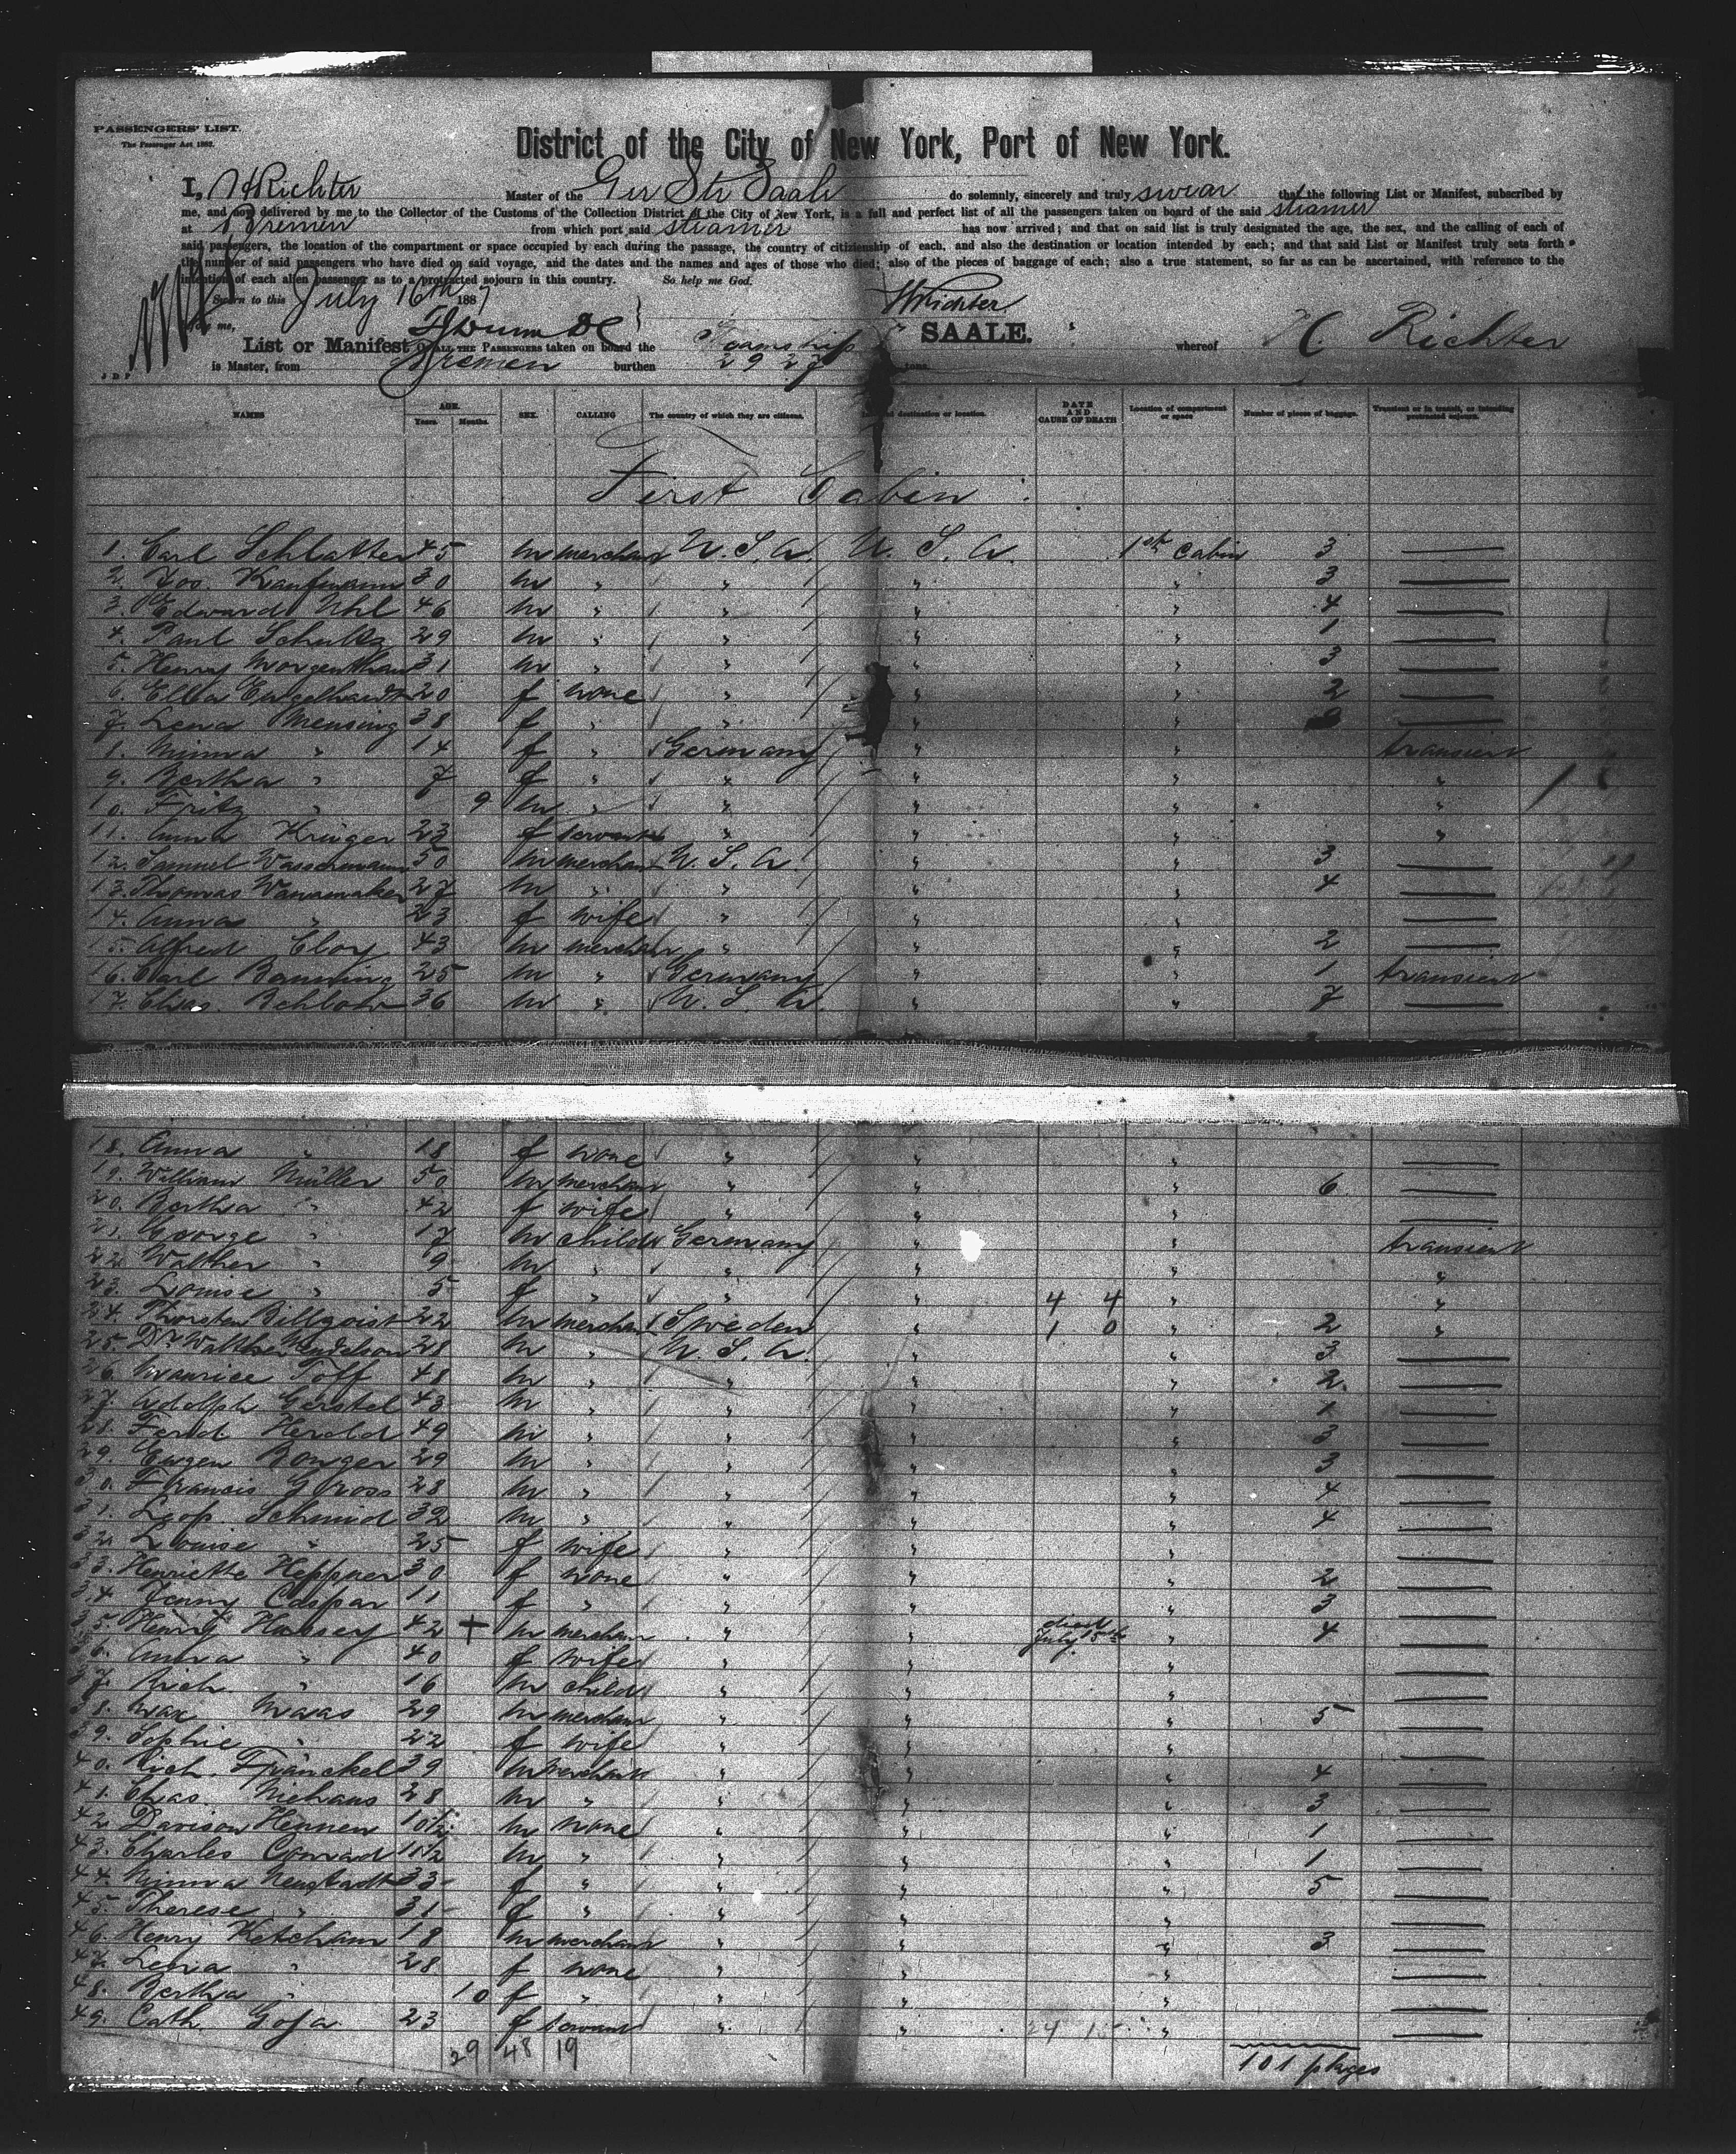 PASSENGERS' LIST.
The Passenger Act 1882.
District of the City of New York, Port of New York.
I, H Richter Master of the Ger Str Saale do solemnly, sincerely and truly swear that the following List or Manifest, subscribed by
me, and now delivered by me to the Collector of the Customs of the Collection District of the City of New York, is a full and perfect list of all the passengers taken on board of the said steamer
at Bremen from which port said steamer has now arrived; and that on said list is truly designated the age, the sex, and the calling of each of
said passengers, the location of the compartment or space occupied by each during the passage, the country of citizenship of each, and also the destination or location intended by each; and that said List or Manifest truly sets forth
the number of said passengers who have died on said voyage, and the dates and the names and ages of those who died; also of the pieces of baggage of each; also a true statement, so far as can be ascertained, with reference to the
intention of each alien passenger as to a protracted sojourn in this country. So help me God.
Sworn to this July 16th 1887 H Richter
me,
List or Manifest OF ALL THE PASSENGERS taken on board the Steamship SAALE. whereof H. Richter
is Master, from Bremen burthen 2927 tons.
NAMES AGE. Years. Months. SEX. CALLING The country of which they are citizens. destination or location. DATE AND CAUSE OF DEATH Location of compartment or space Number of pieces of baggage. Transient or in transit, or intending protracted sojourn.
First Cabin
1. Carl Schlatter 45 m merchant U. S. A. U. S. A. 1st Cabin 3 —
2. Jos. Kaufmann 30 m " " " " 3 —
3. Edward Uhl 46 m " " " " 4 —
4. Paul Schultz 29 m " " " " 1 —
5. Henry Morgenthau 31 m " " " " 3 —
6. Ella Engelhardt 20 f none " " " 2 —
7. Lena Mensing 38 f " " " " —
8. Minna " 14 f " Germany " " transient
9. Bertha " 7 f " " " " "
10. Fritz " 9 m " " " " "
11. Anna Krüger 23 f servant " " " "
12. Samuel Wassermann 50 m merchant U. S. A. " " 3 —
13. Thomas Wanamaker 27 m " " " " 4 —
14. Anna " 23 f wife " " " —
15. Alfred Cloy 43 m merchant " " " 2 —
16. Carl Banning 25 m " Germany " " 1 transient
17. Chas. Rehbow 36 m " U. S. A. " " 7 —
18. Anna " 18 f none " " " —
19. William Müller 50 m merchant " " " 6 —
20. Bertha " 42 f wife " " " —
21. George " 17 m child Germany " " transient
22. Walther " 9 m " " " " "
23. Louise " 5 f " " " 4 4 " "
24. Thorsten Billqvist 22 m merchant Sweden " 1 0 " 2 "
25. Dr. Walther Mendelson 28 m " U. S. A. " " 3 —
26. Maurice Toff 48 m " " " " 2 —
27. Adolph Gerstel 43 m " " " " 1 —
28. Ferd Herold 49 m " " " " 3 —
29. Eugen Bonger 29 m " " " " 3 —
30. Francis Gross 28 m " " " " 4 —
31. Leop. Schmid 32 m " " " " 4 —
32. Louise " 25 f wife " " " —
33. Henriette Heppner 30 f none " " " 2 —
34. Jenny Caspar 11 f " " " " 3 —
35. Henry Hussey 42 + m merchant " " died July 15th " 4 —
36. Anna " 40 f wife " " " —
37. Rich. " 16 m child " " " —
38. Max Maas 29 m merchant " " " 5 —
39. Sophie " 22 f wife " " " —
40. Rich. Fränckel 39 m merchant " " " 4 —
41. Chas. Niehaus 28 m " " " " 3 —
42. Davison Hennen 10½ m none " " " 1 —
43. Charles Conrad 10½ m " " " " 1 —
44. Minna Neustadt 33 f " " " " 5 —
45. Therese " 31 f " " " " —
46. Henry Ketcham 18 m merchant " " " 3 —
47. Lena " 28 f none " " " —
48. Bertha " 10 f " " " " —
49. Cath. Gosa 23 f servant " " " —
29 48 19 101 pkgs